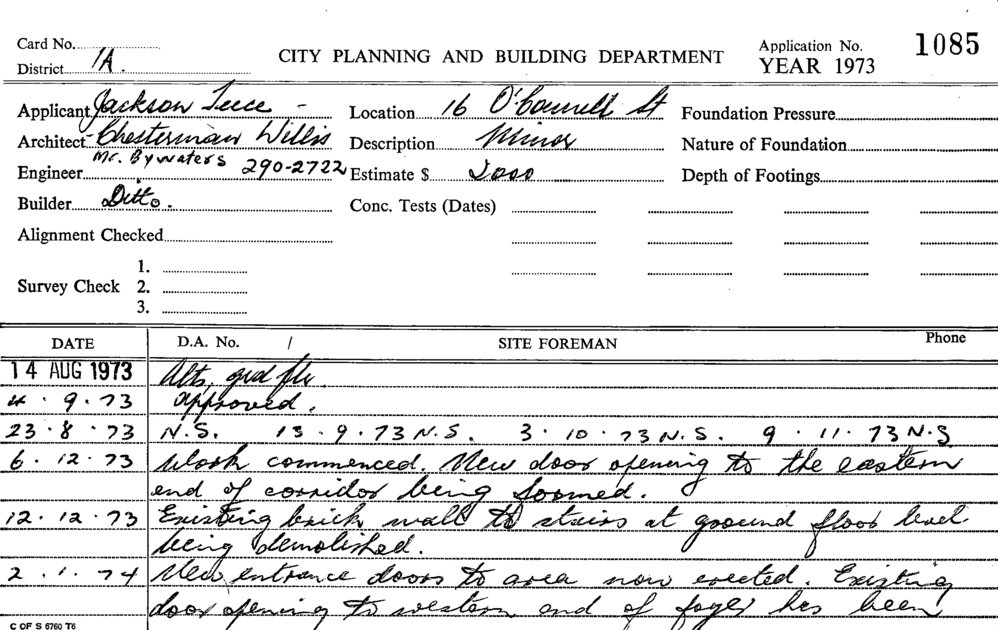 Card No.
District 1A.
CITY PLANNING AND BUILDING DEPARTMENT
Application No. 1085
YEAR 1973
Applicant Jackson Teece -
Location 16 O'Connell St
Foundation Pressure
Architect Chesterman Willis
Description Minor
Nature of Foundation
Mr. Bywaters 290-2722
Engineer
Estimate $
Depth of Footings
Builder Ditto.
Conc. Tests (Dates)
Alignment Checked
1.
Survey Check 2.
3.
DATE D.A. No. / SITE FOREMAN Phone
14 AUG 1973 Alts, grd flr.
4 . 9 . 73 approved.
23 . 8 . 73 N.S. 13 . 9 . 73 N.S. 3 . 10 . 73 N.S. 9 . 11 . 73 N.S
6 . 12 . 73 Work commenced. New door opening to the eastern
end of corridor being formed.
12 . 12 . 73 Existing brick wall to stairs at ground floor level
being demolished.
2 . 1 . 74 New entrance doors to area now erected. Existing
door opening to western end of foyer has been
C OF S 6760 T6